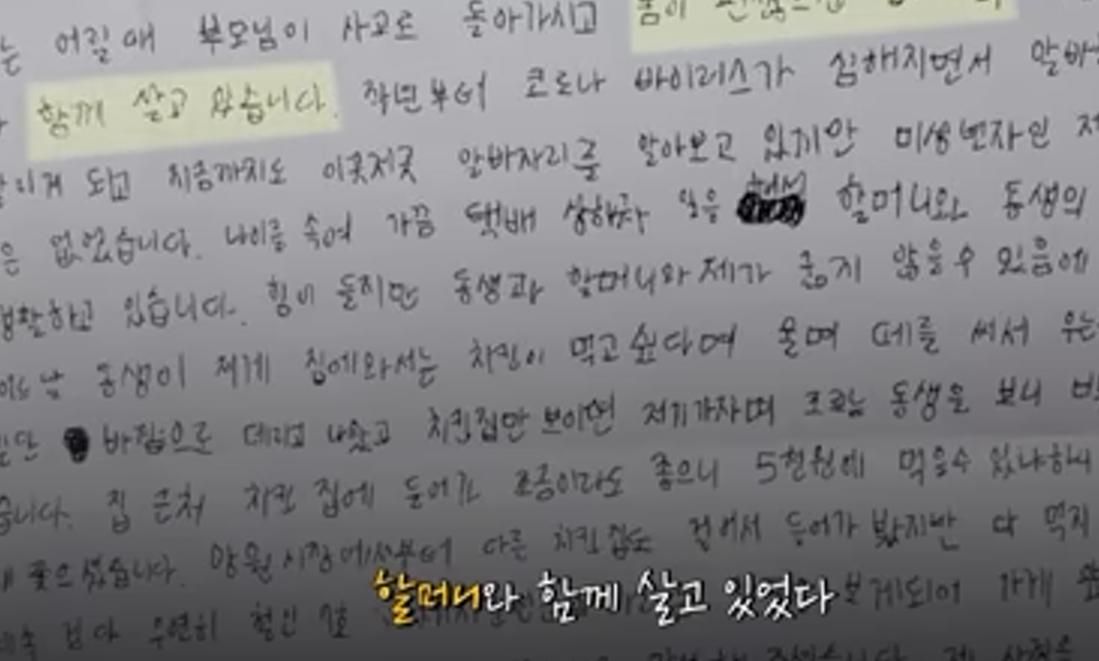 어릴 때 부모님이 사고로 돌아가시고 몸이
함께 살고 있습니다. 작년부터 코로나 바이러스가 심해지면서
되고 지금까지도 이곳저곳 알바자리를 알아보고 있지만 미성년자인
은 없었습니다. 나이를 속여 가끔 택배 상하차 일을 해서 할머니와 동생의
생활하고 있습니다. 힘이 들지만 동생과 할머니와 제가 굶지 않을 수 있음에
동생이 제게 집에와서는 치킨이 먹고 싶다며 울며 떼를 써서 우는
일단 바깥으로 데리고 나왔고 치킨집만 보이면 저기가자며 조르는 동생을 보니
습니다. 집 근처 치킨 집에 들어가 조금이라도 좋으니 5천원에 먹을수 있냐하니
다른 치킨 집도 걸어서 들어가 봤지만 다 먹지
우연히 보게되어 가게
할머니와 함께 살고 있었다